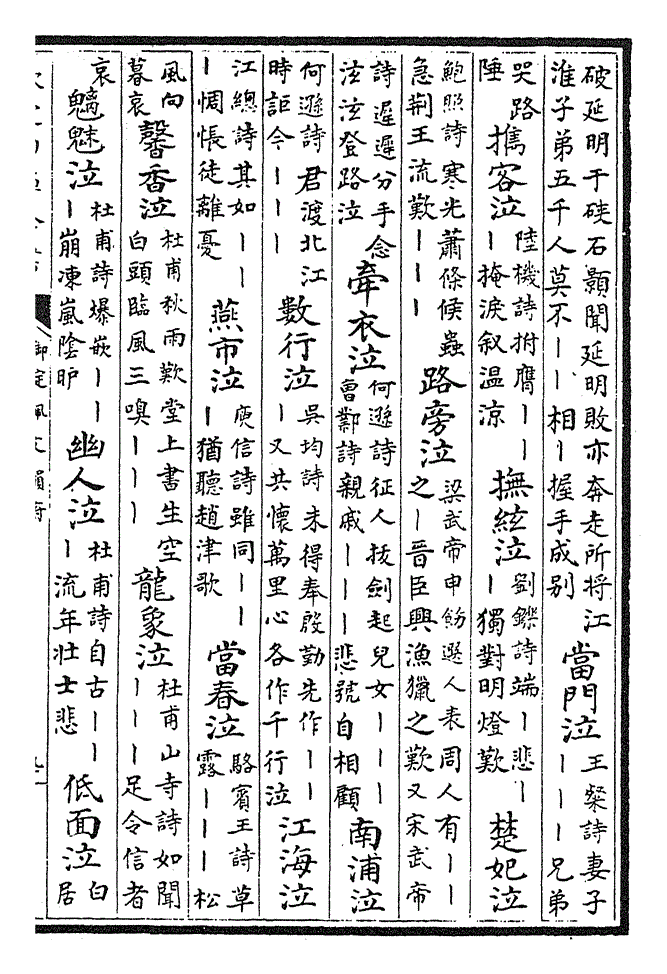 破延明于硤石顥聞延明敗亦奔走所將江
淮子弟五千人莫不丨丨相丨握手成别
當門泣
王粲詩妻子
丨丨丨兄弟
哭路
陲
攜客泣
陸機詩拊膺丨丨
丨掩淚叙温涼
撫絃泣
劉鑠詩端丨悲丨
丨獨對明燈歎
楚妃泣
鮑照詩寒光蕭條候蟲
急荆王流歎丨丨丨
路旁泣
梁武帝申飭選人表周人有丨丨
之丨晉臣興漁獵之歎又宋武帝
詩遲遲分手念
泫泫登路泣
牽衣泣
何遜詩征人拔劍起兒女丨丨丨
曹鄴詩親戚丨丨丨丨悲號自相顧
南浦泣
何遜詩君渡北江
時詎今丨丨丨
數行泣
吳均詩未得奉殷勤先作丨丨
丨又共懷萬里心各作千行泣
江海泣
江總詩其如丨丨
丨惆悵徒離憂
燕市泣
庾信詩雖同丨丨
丨猶聽趙津歌
當春泣
駱賓王詩草
露丨丨丨松
風向
暮哀
馨香泣
杜甫秋雨歎堂上書生空
白頭臨風三嗅丨丨丨
龍象泣
杜甫山寺詩如聞
丨丨丨足令信者
哀
魑魅泣
杜甫詩爆嵌丨丨
丨崩凍嵐陰昈
幽人泣
杜甫詩自古丨丨
丨流年壯士悲
低面泣
白
居